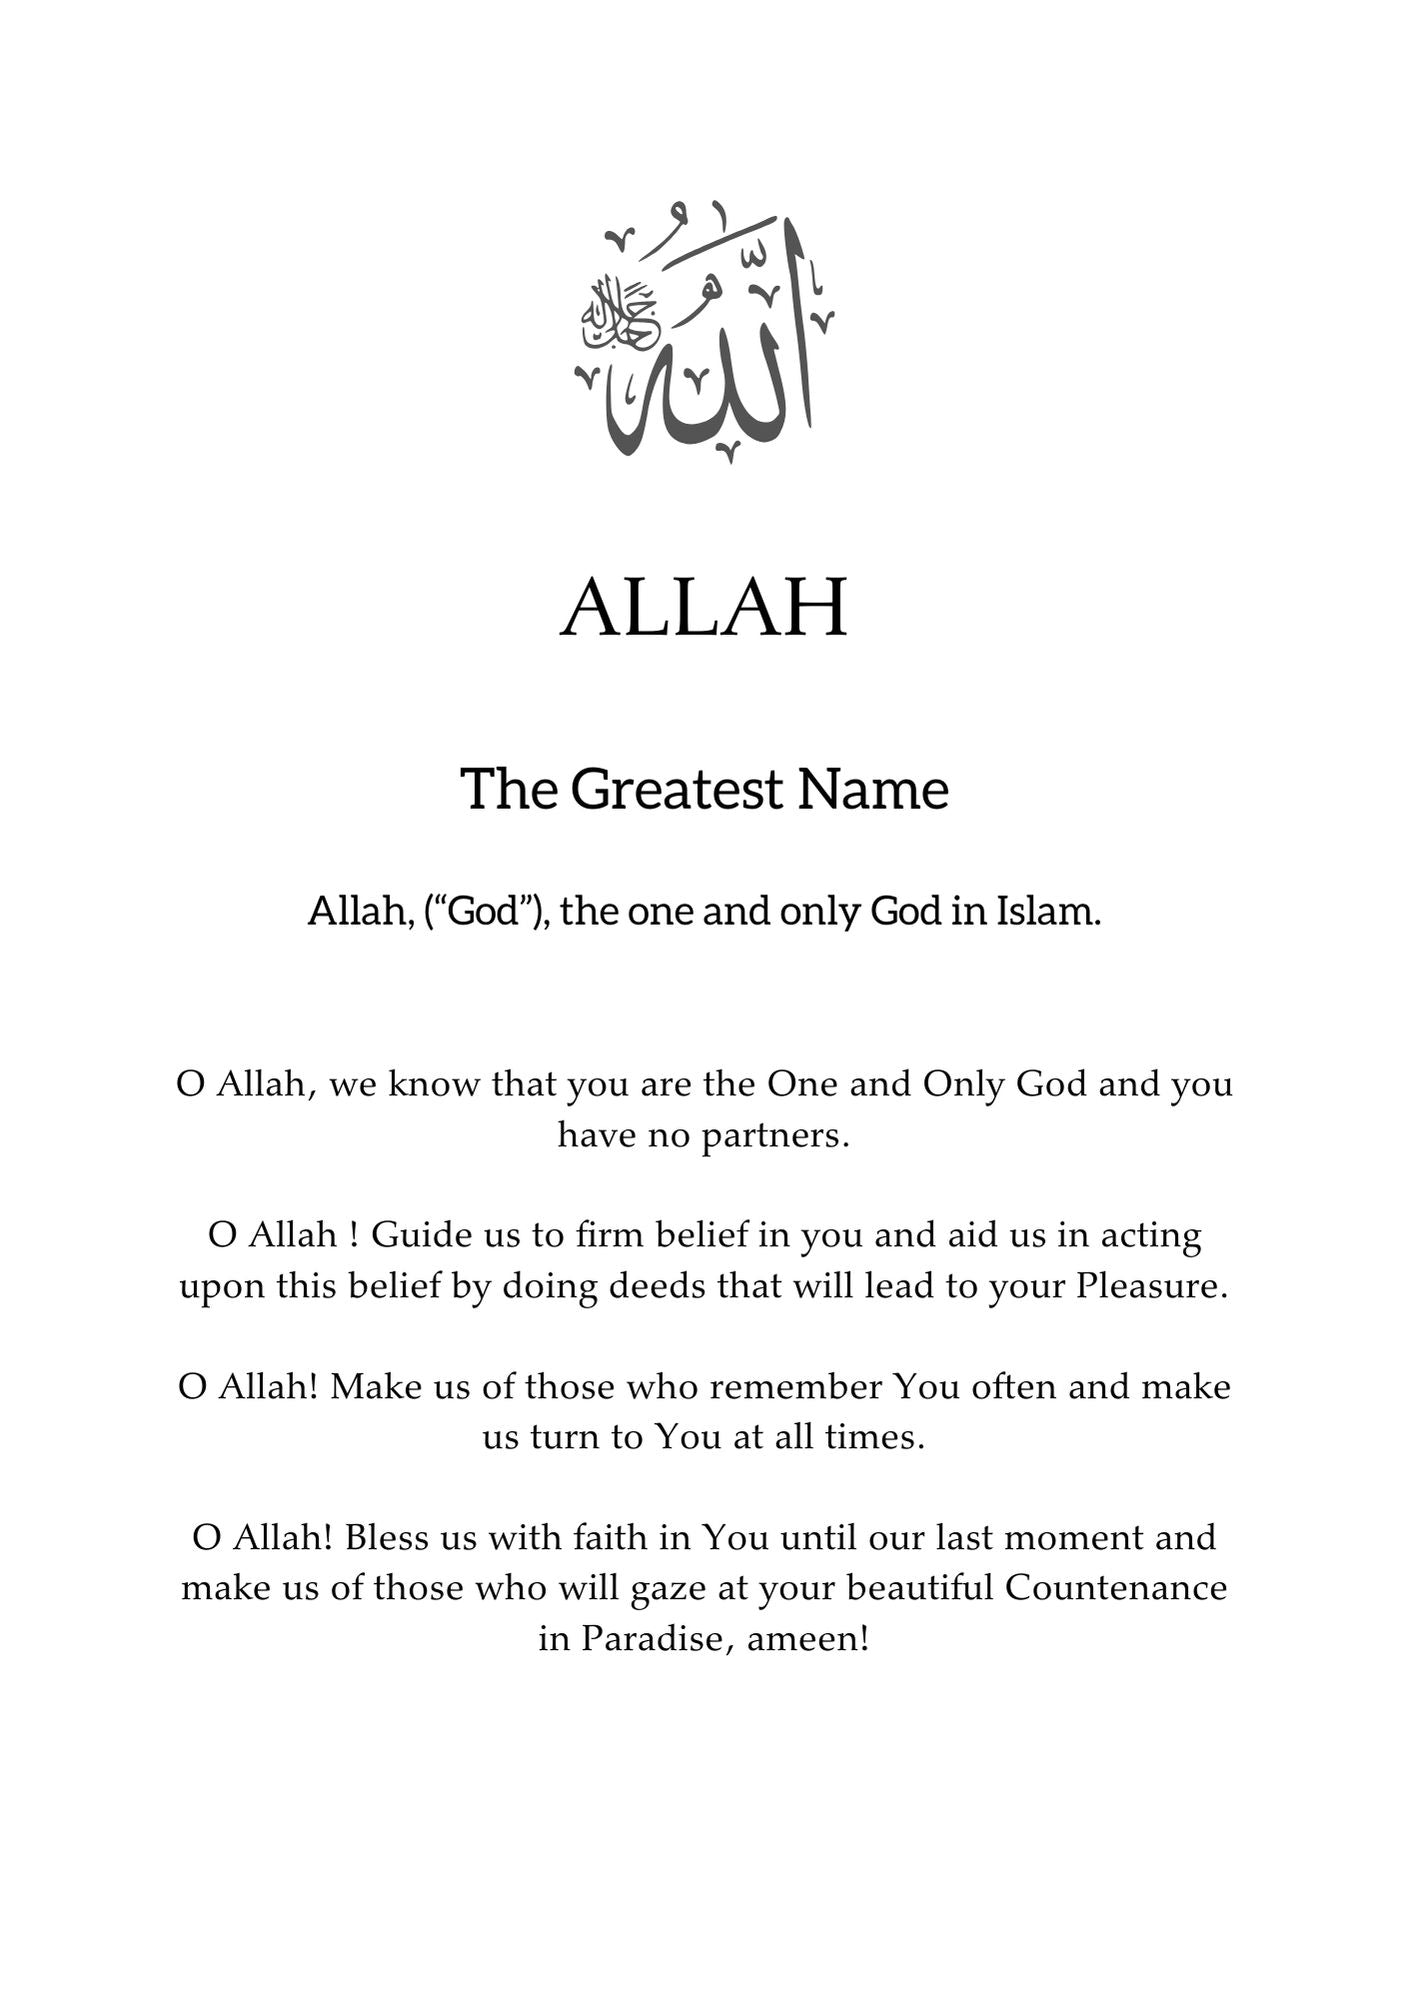 الله
جل جلاله
ALLAH
The Greatest Name
Allah, (“God”), the one and only God in Islam.
O Allah, we know that you are the One and Only God and you
have no partners.
O Allah ! Guide us to firm belief in you and aid us in acting
upon this belief by doing deeds that will lead to your Pleasure.
O Allah! Make us of those who remember You often and make
us turn to You at all times.
O Allah! Bless us with faith in You until our last moment and
make us of those who will gaze at your beautiful Countenance
in Paradise, ameen!